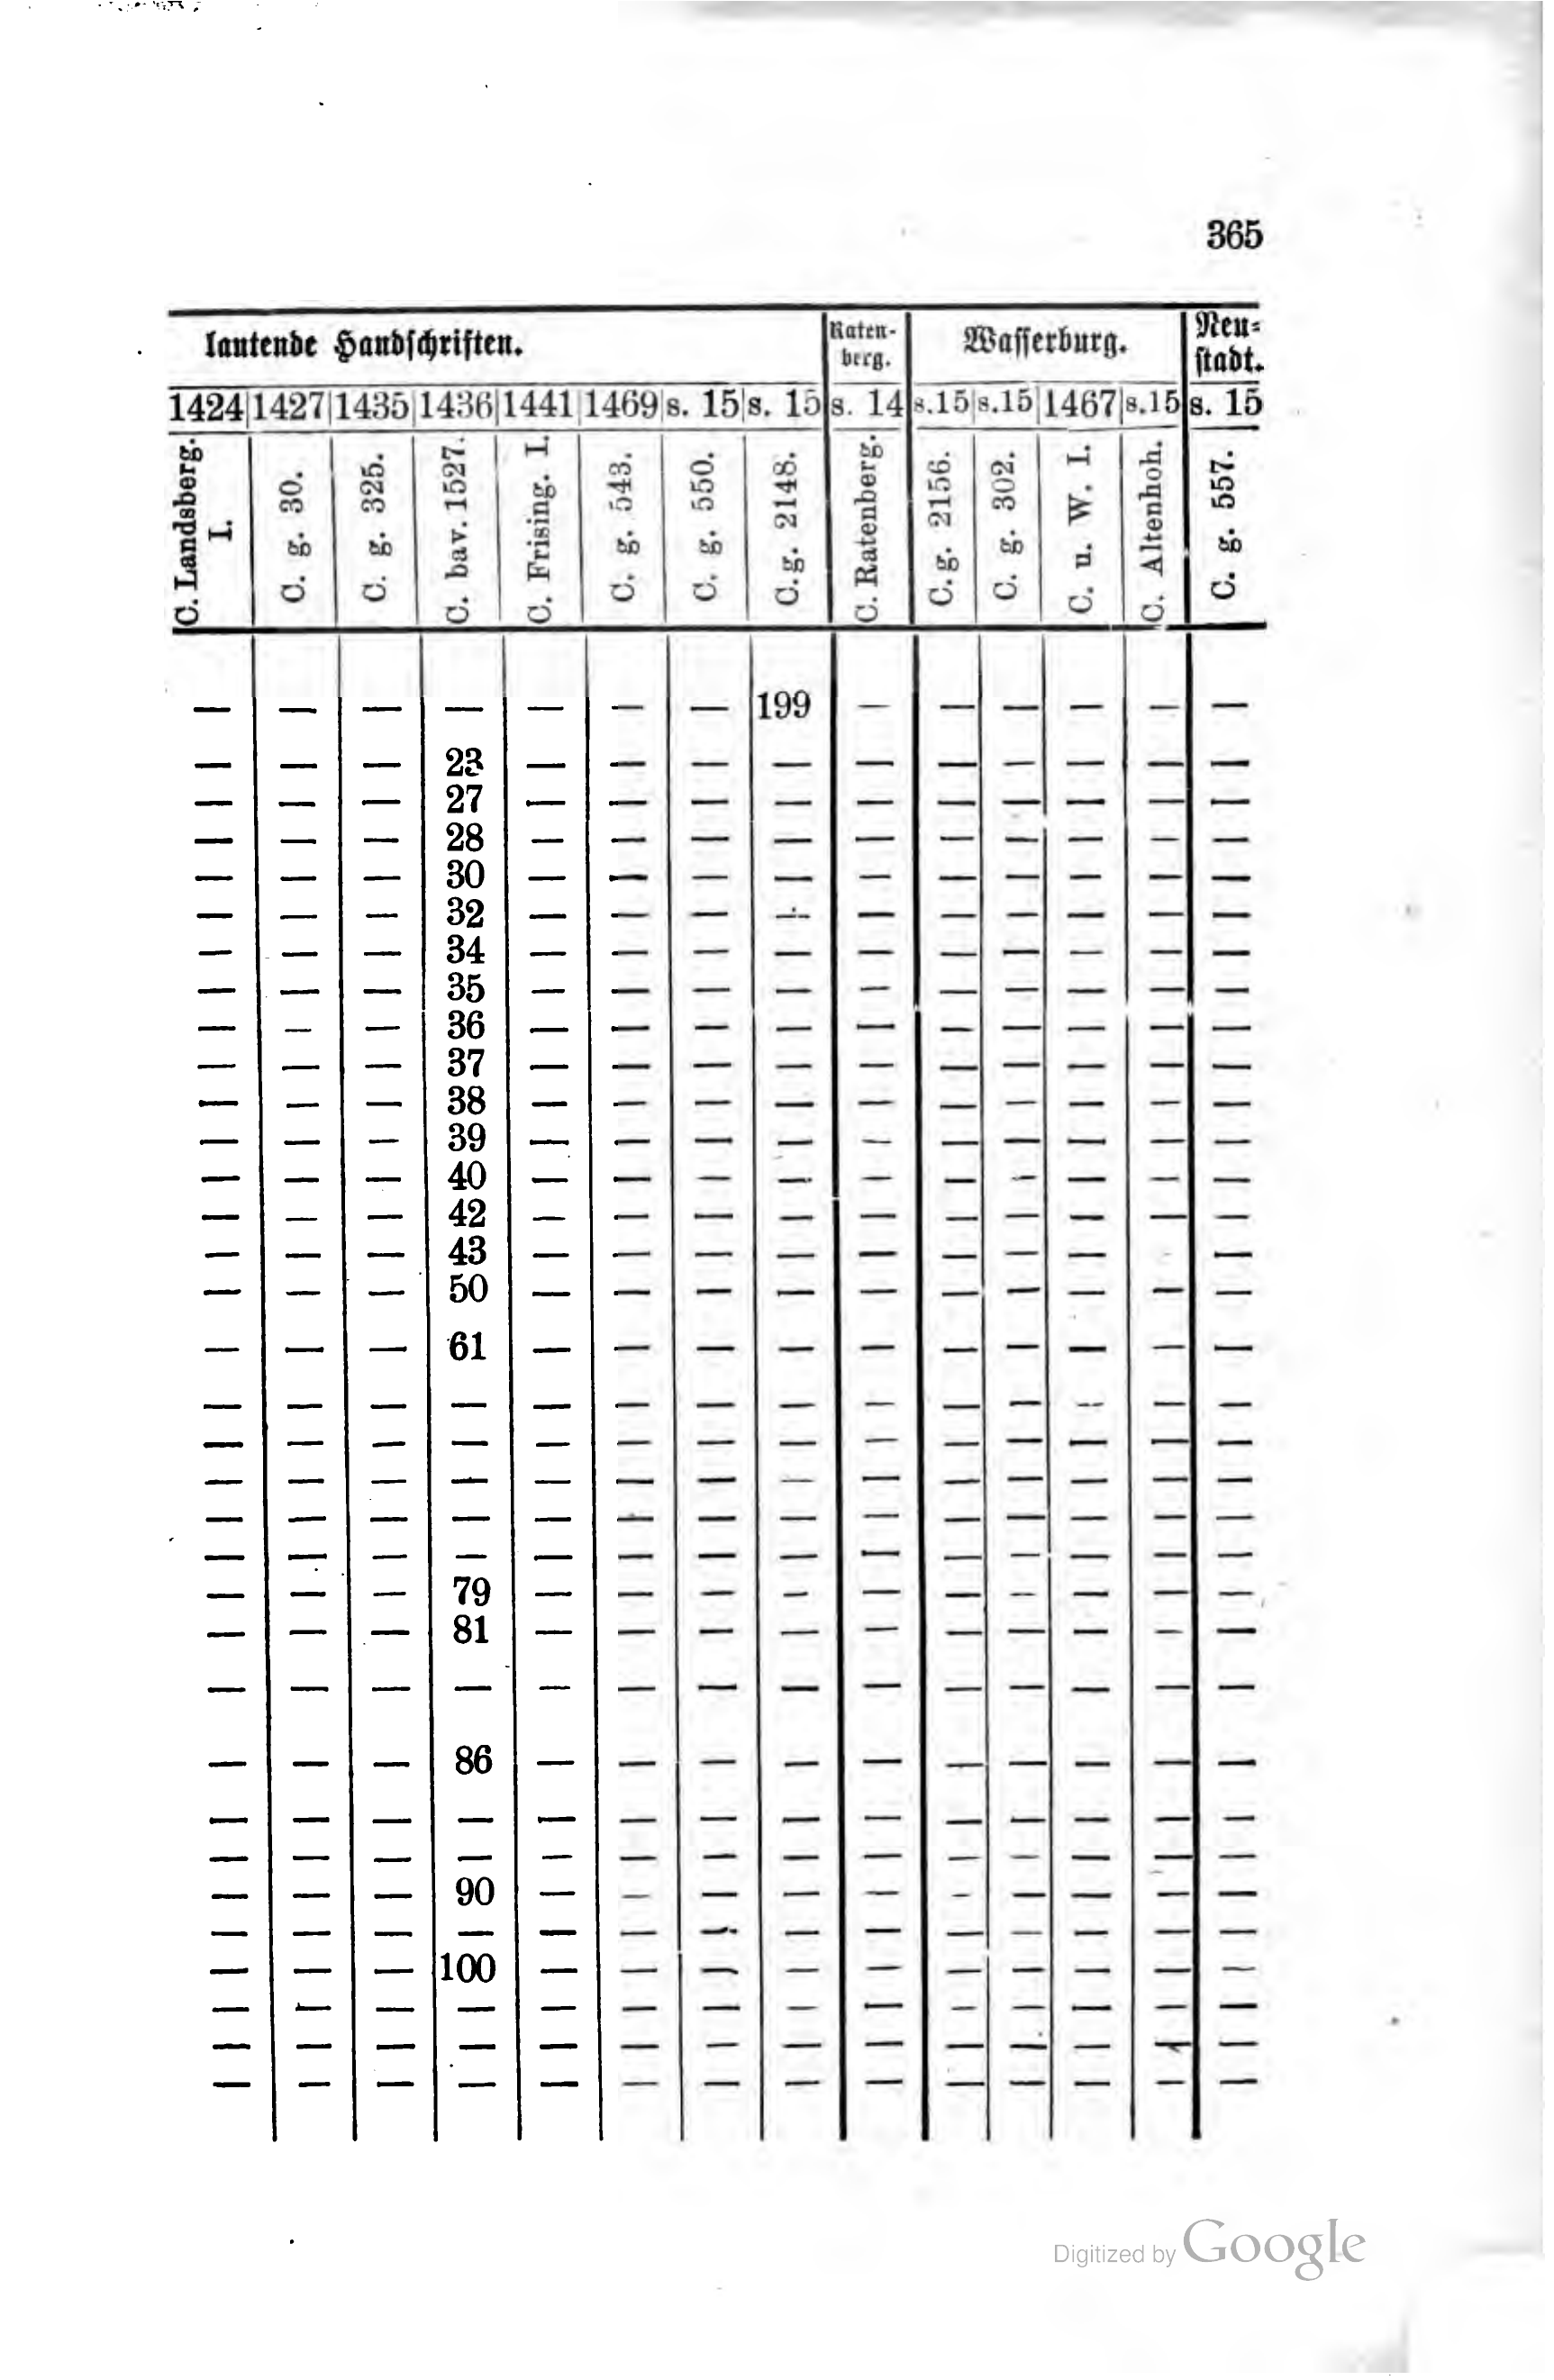 365
lautende Handschriften. | Raten-berg. | Wasserburg. | Neu=stadt.
1424 | 1427 | 1435 | 1436 | 1441 | 1469 | s. 15 | s. 15 | s. 14 | s.15 | s.15 | 1467 | s.15 | s. 15
C. Landsberg. I. | C. g. 30. | C. g. 325. | C. bav. 1527. | C. Frising. I. | C. g. 543. | C. g. 550. | C.g. 2148. | C. Ratenberg. | C.g. 2156. | C. g. 302. | C. u. W. I. | C. Altenhoh. | C. g. 557.
— — — — — — — 199 — — — — — —
— — — 23 — — — — — — — — — —
— — — 27 — — — — — — — — — —
— — — 28 — — — — — — — — — —
— — — 30 — — — — — — — — — —
— — — 32 — — — — — — — — — —
— — — 34 — — — — — — — — — —
— — — 35 — — — — — — — — — —
— — — 36 — — — — — — — — — —
— — — 37 — — — — — — — — — —
— — — 38 — — — — — — — — — —
— — — 39 — — — — — — — — — —
— — — 40 — — — — — — — — — —
— — — 42 — — — — — — — — — —
— — — 43 — — — — — — — — — —
— — — 50 — — — — — — — — — —
— — — 61 — — — — — — — — — —
— — — — — — — — — — — — — —
— — — — — — — — — — — — — —
— — — — — — — — — — — — — —
— — — — — — — — — — — — — —
— — — — — — — — — — — — — —
— — — 79 — — — — — — — — — —
— — — 81 — — — — — — — — — —
— — — — — — — — — — — — — —
— — — 86 — — — — — — — — — —
— — — — — — — — — — — — — —
— — — — — — — — — — — — — —
— — — 90 — — — — — — — — — —
— — — — — — — — — — — — — —
— — — 100 — — — — — — — — — —
— — — — — — — — — — — — — —
— — — — — — — — — — — — — —
— — — — — — — — — — — — — —
Digitized by Google